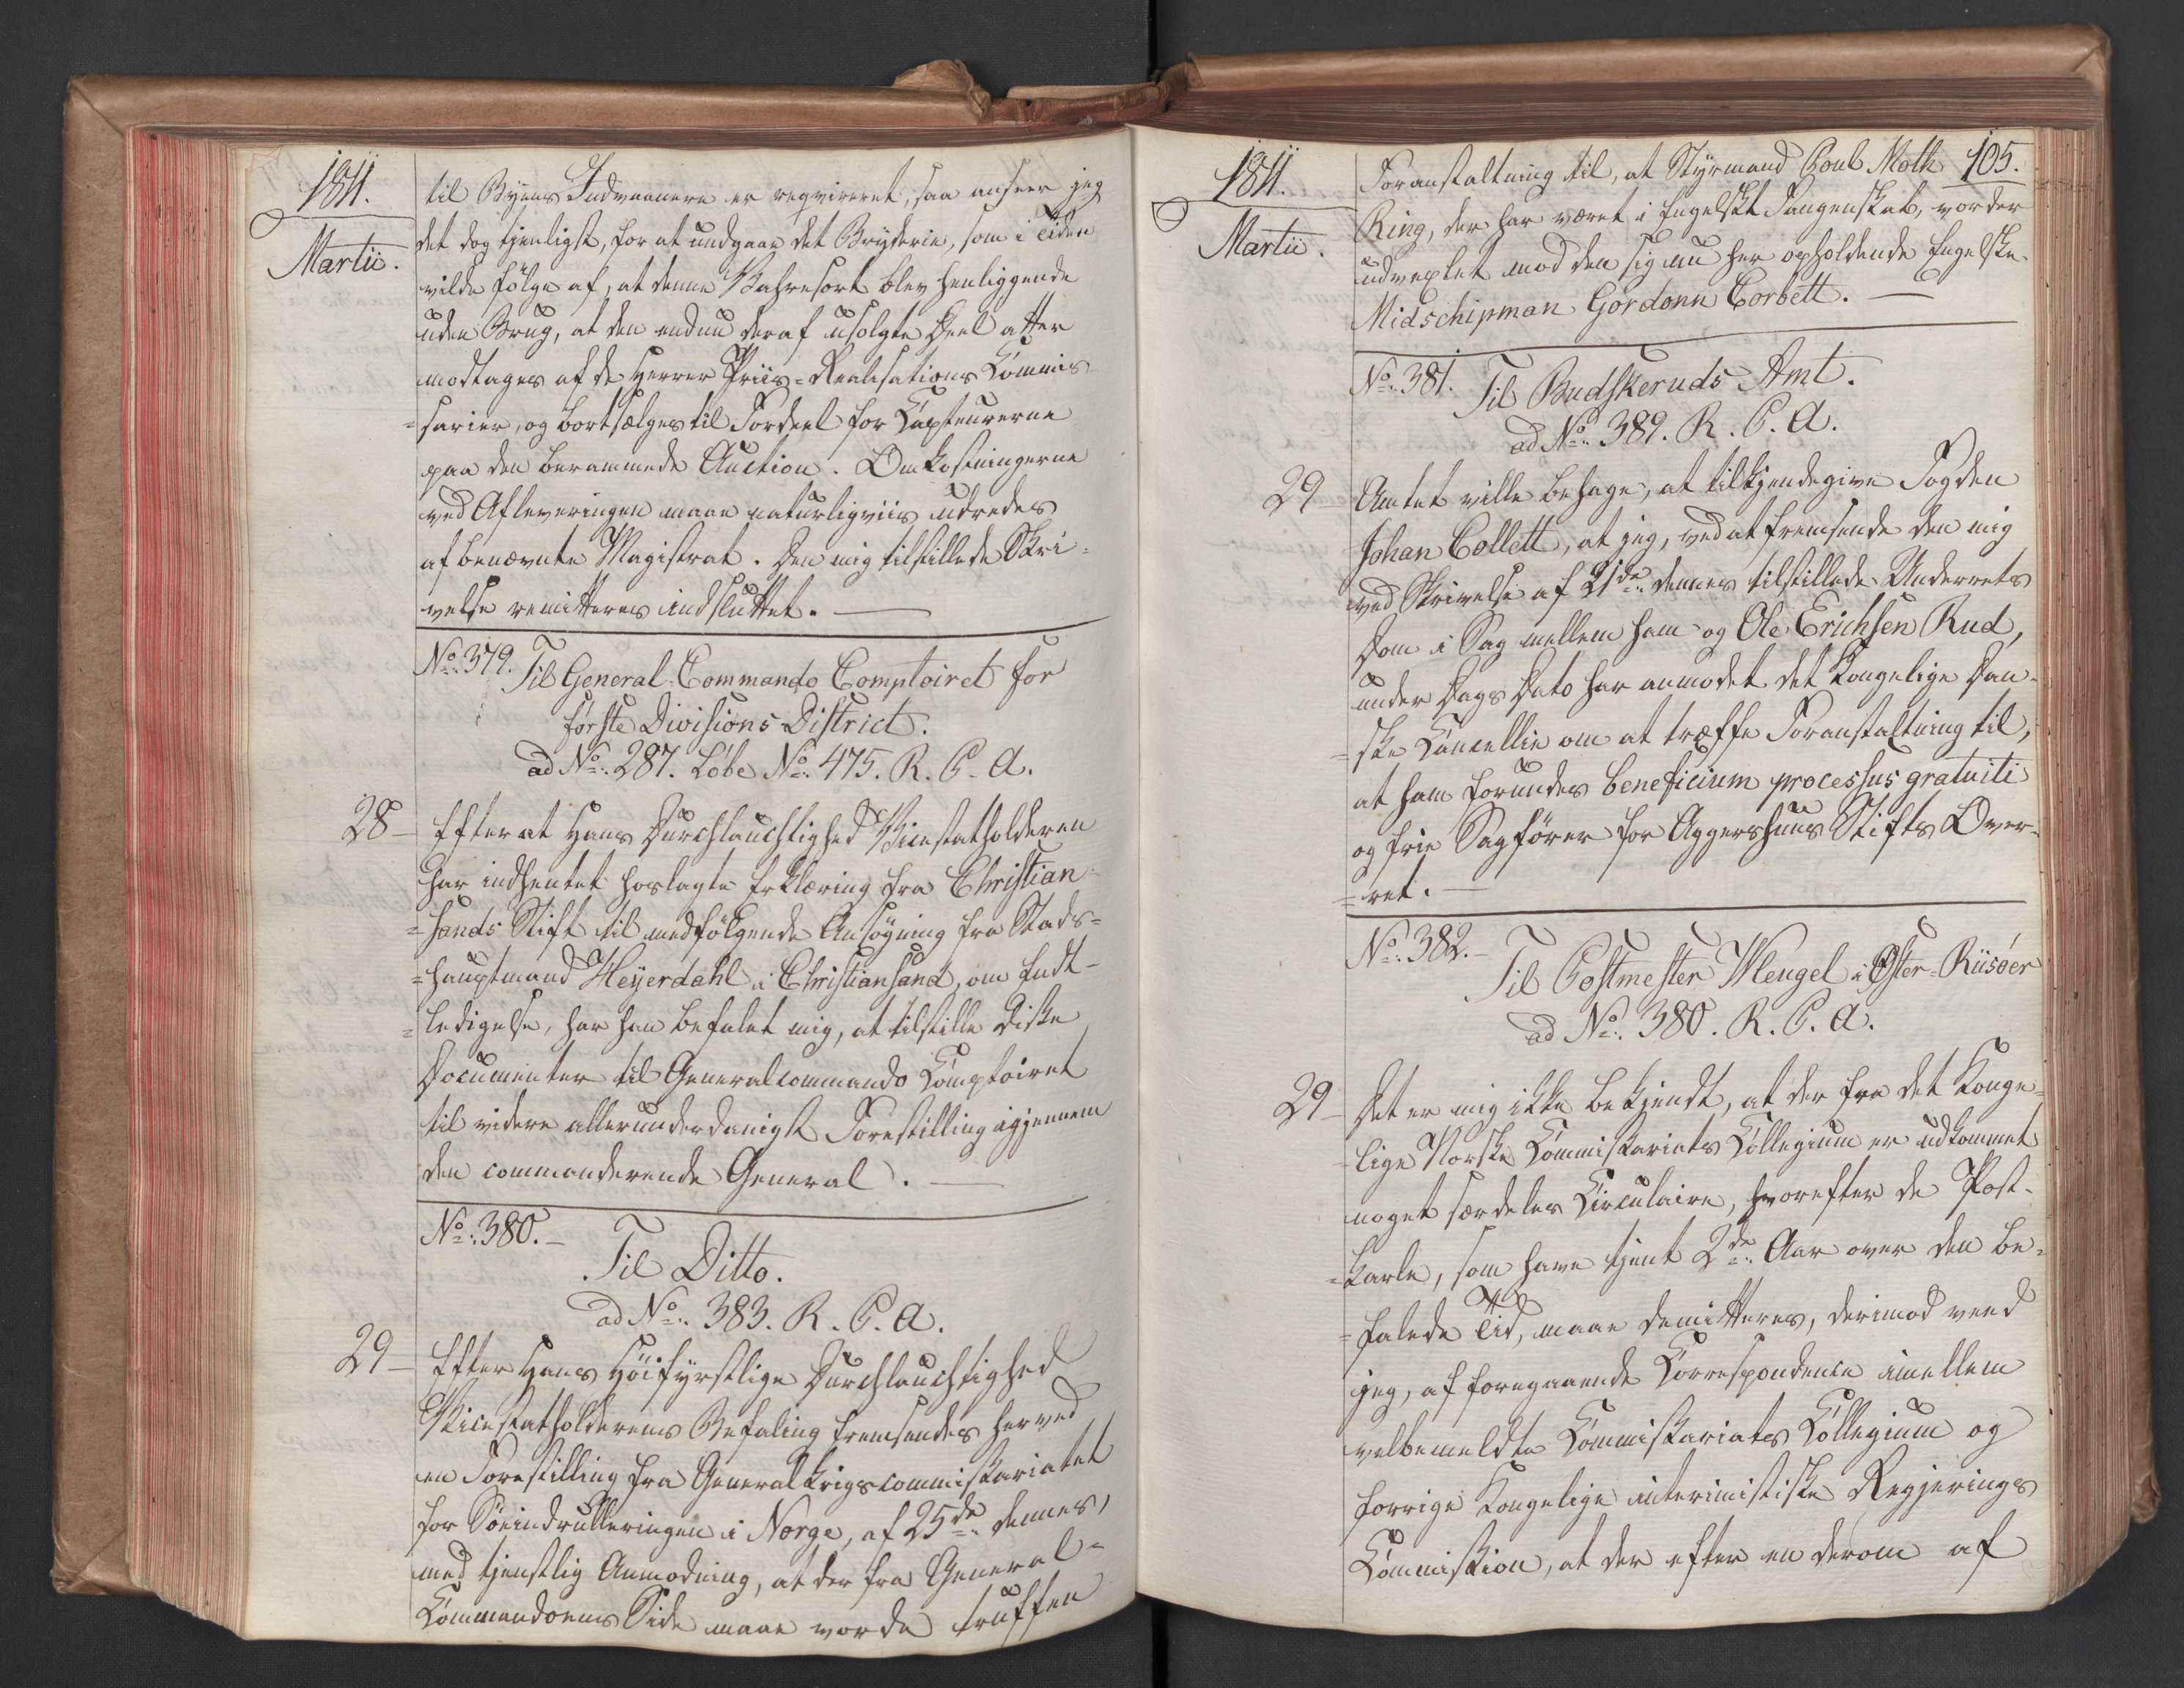 1811.
Martii.
til Byens Indvaanere er reqvireret, saa anseer jeg
det dog tjenligst, for at undgaae det Bryderie, som i Tiden
vilde følge af, at denne Vahresort blev henliggende
uden Brug, at den endnu deraf usolgte Deel atter
modtages af de Herrer Priis-Realisations Commis-
=sarier, og bortsælges til Fordeel for Capteurerne
paa den berammede Auction. Omkostningerne
ved Afleveringen maae naturligviis udredes
af benævnte Magistrat. Den mig tilstillede Skri-
velse remitteres indsluttet.
No. 379. Til General-Commando Comptoiret for
første Divisions District.
ad No. 287. Løbe No. 475. R. P. A.
28 – Efter at Hans Durchlauchtighed Vicestatholderen
har indhentet hoslagte Erklæring fra Christian-
=sands Stift til medfølgende Ansøgning fra Stads-
=hauptmand Heyerdahl i Christiansand, om Endt-
=ledigelse, har han befalet mig, at tilstille Diske
Documenter til Generalcommando Comptoiret
til videre allerunderdanigst Forestilling igjennem
den commanderende General.
No. 380. –
Til Ditto.
ad No. 383. R. P. A.
29 – Efter Hans Høifyrstlige Durchlauchtighed
Vicestatholderens Befaling fremsendes herved
en Forestilling fra Generalkrigscommissariatet
for Søeindrulleringen i Norge, af 25de dennes,
med tjenstlig Anmodning, at der fra General-
Commandoens Side maae vorde truffen
105.
1811.
Martii.
Foranstaltning til, at Styrmand Poul Moth
Ring, der har været i Engelskt Fangenskab, vorder
udvexlet mod den sig nu her opholdende Engelske
Midschipman Gordonn Corbett. –
No. 381. Til Budskeruds Amt.
ad No. 389. R. P. A.
29 – Amtet ville behage, at tilkjendegive Fogden
Johan Collett, at jeg, ved at fremsende den mig
ved Skrivelse af 21de dennes tilstillede Underrets
Dom i Sag mellem ham og Ole Erichsen Rud,
under Dags Dato har anmodet det Kongelige Dan-
=ske Cancellie om at træffe Foranstaltning til,
at ham forundes beneficium processus gratuiti
og frie Sagfører for Aggershuus Stifts Over-
=ret. –
No. 382. –
Til Postmester Wengel i Øster-Riisøer
ad No. 380. R. P. A.
29 – Det er mig ikke bekjendt, at der fra det Konge-
lige Norske Commissariats Collegium er udkommet
noget særdeles Circulaire, hvorefter de Post-
=karle, som have tjent 2de Aar over den be-
=falede Tid, maae demitteres, derimod veed
jeg, af foregaaende Correspondence imellem
velbemeldte Commissariats Collegium og
forrige Kongelige interimistiske Regjerings
Commission, at der efter en derom af